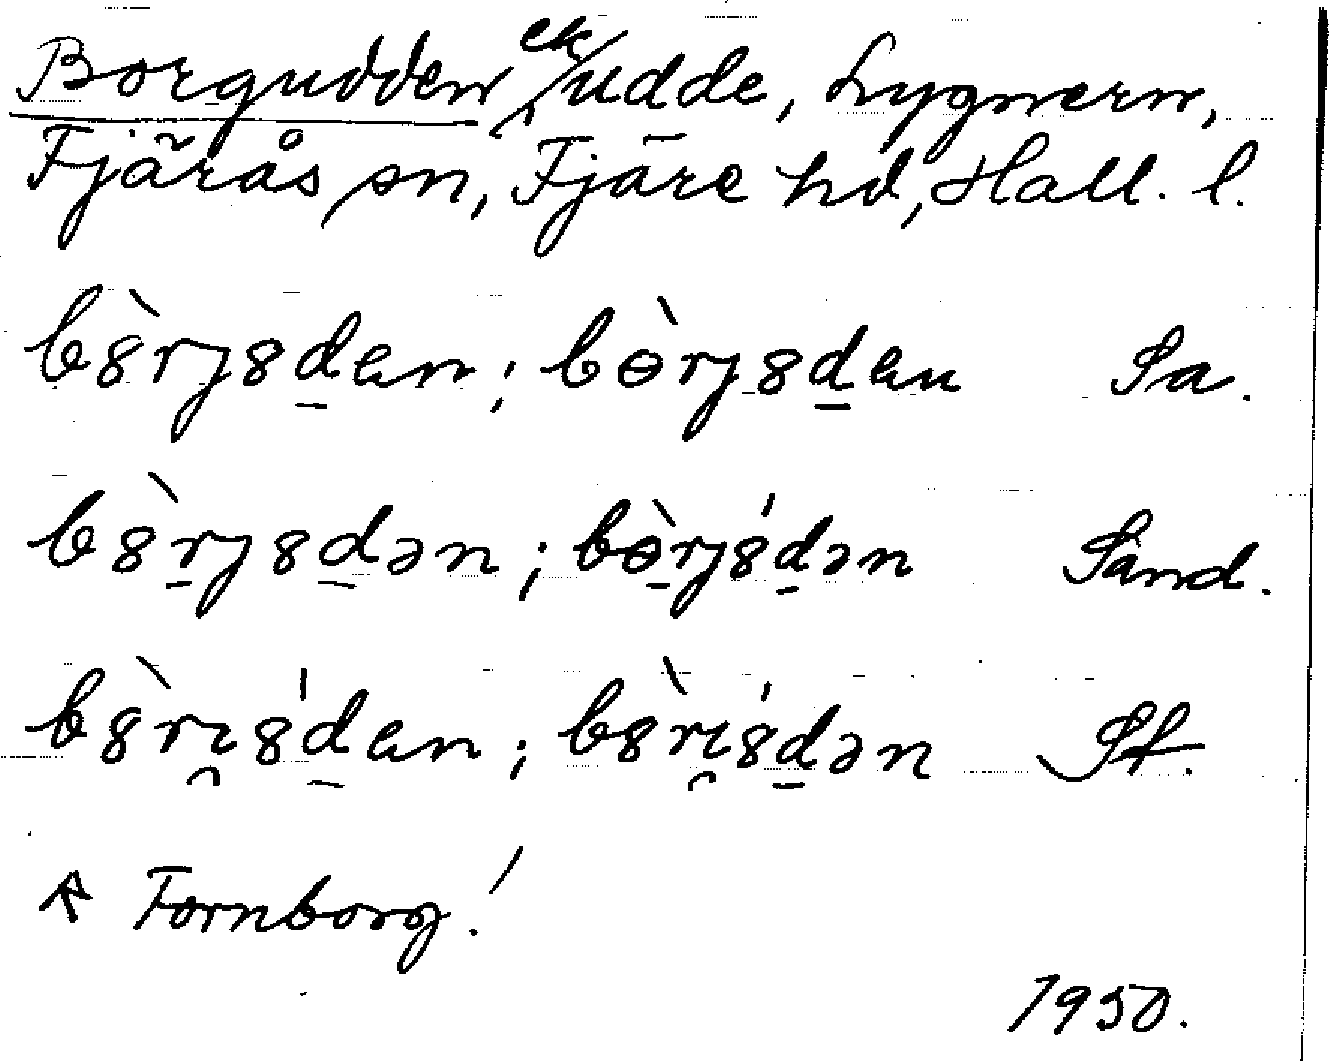 Borgudden ek/udde, Lygnern,
Fjärås sn, Fjäre hd, Hall. l.
b8̀rj8d̲en; bɵ̀rj8d̲en Sa.
b8̀r̲j8d̲ən; bɵ̀r̲j8́d̲ən Sand.
b8̀rɪ̯8́d̲en; b8̀rɪ̯8́d̲ən St.
Fornborg!
1950.